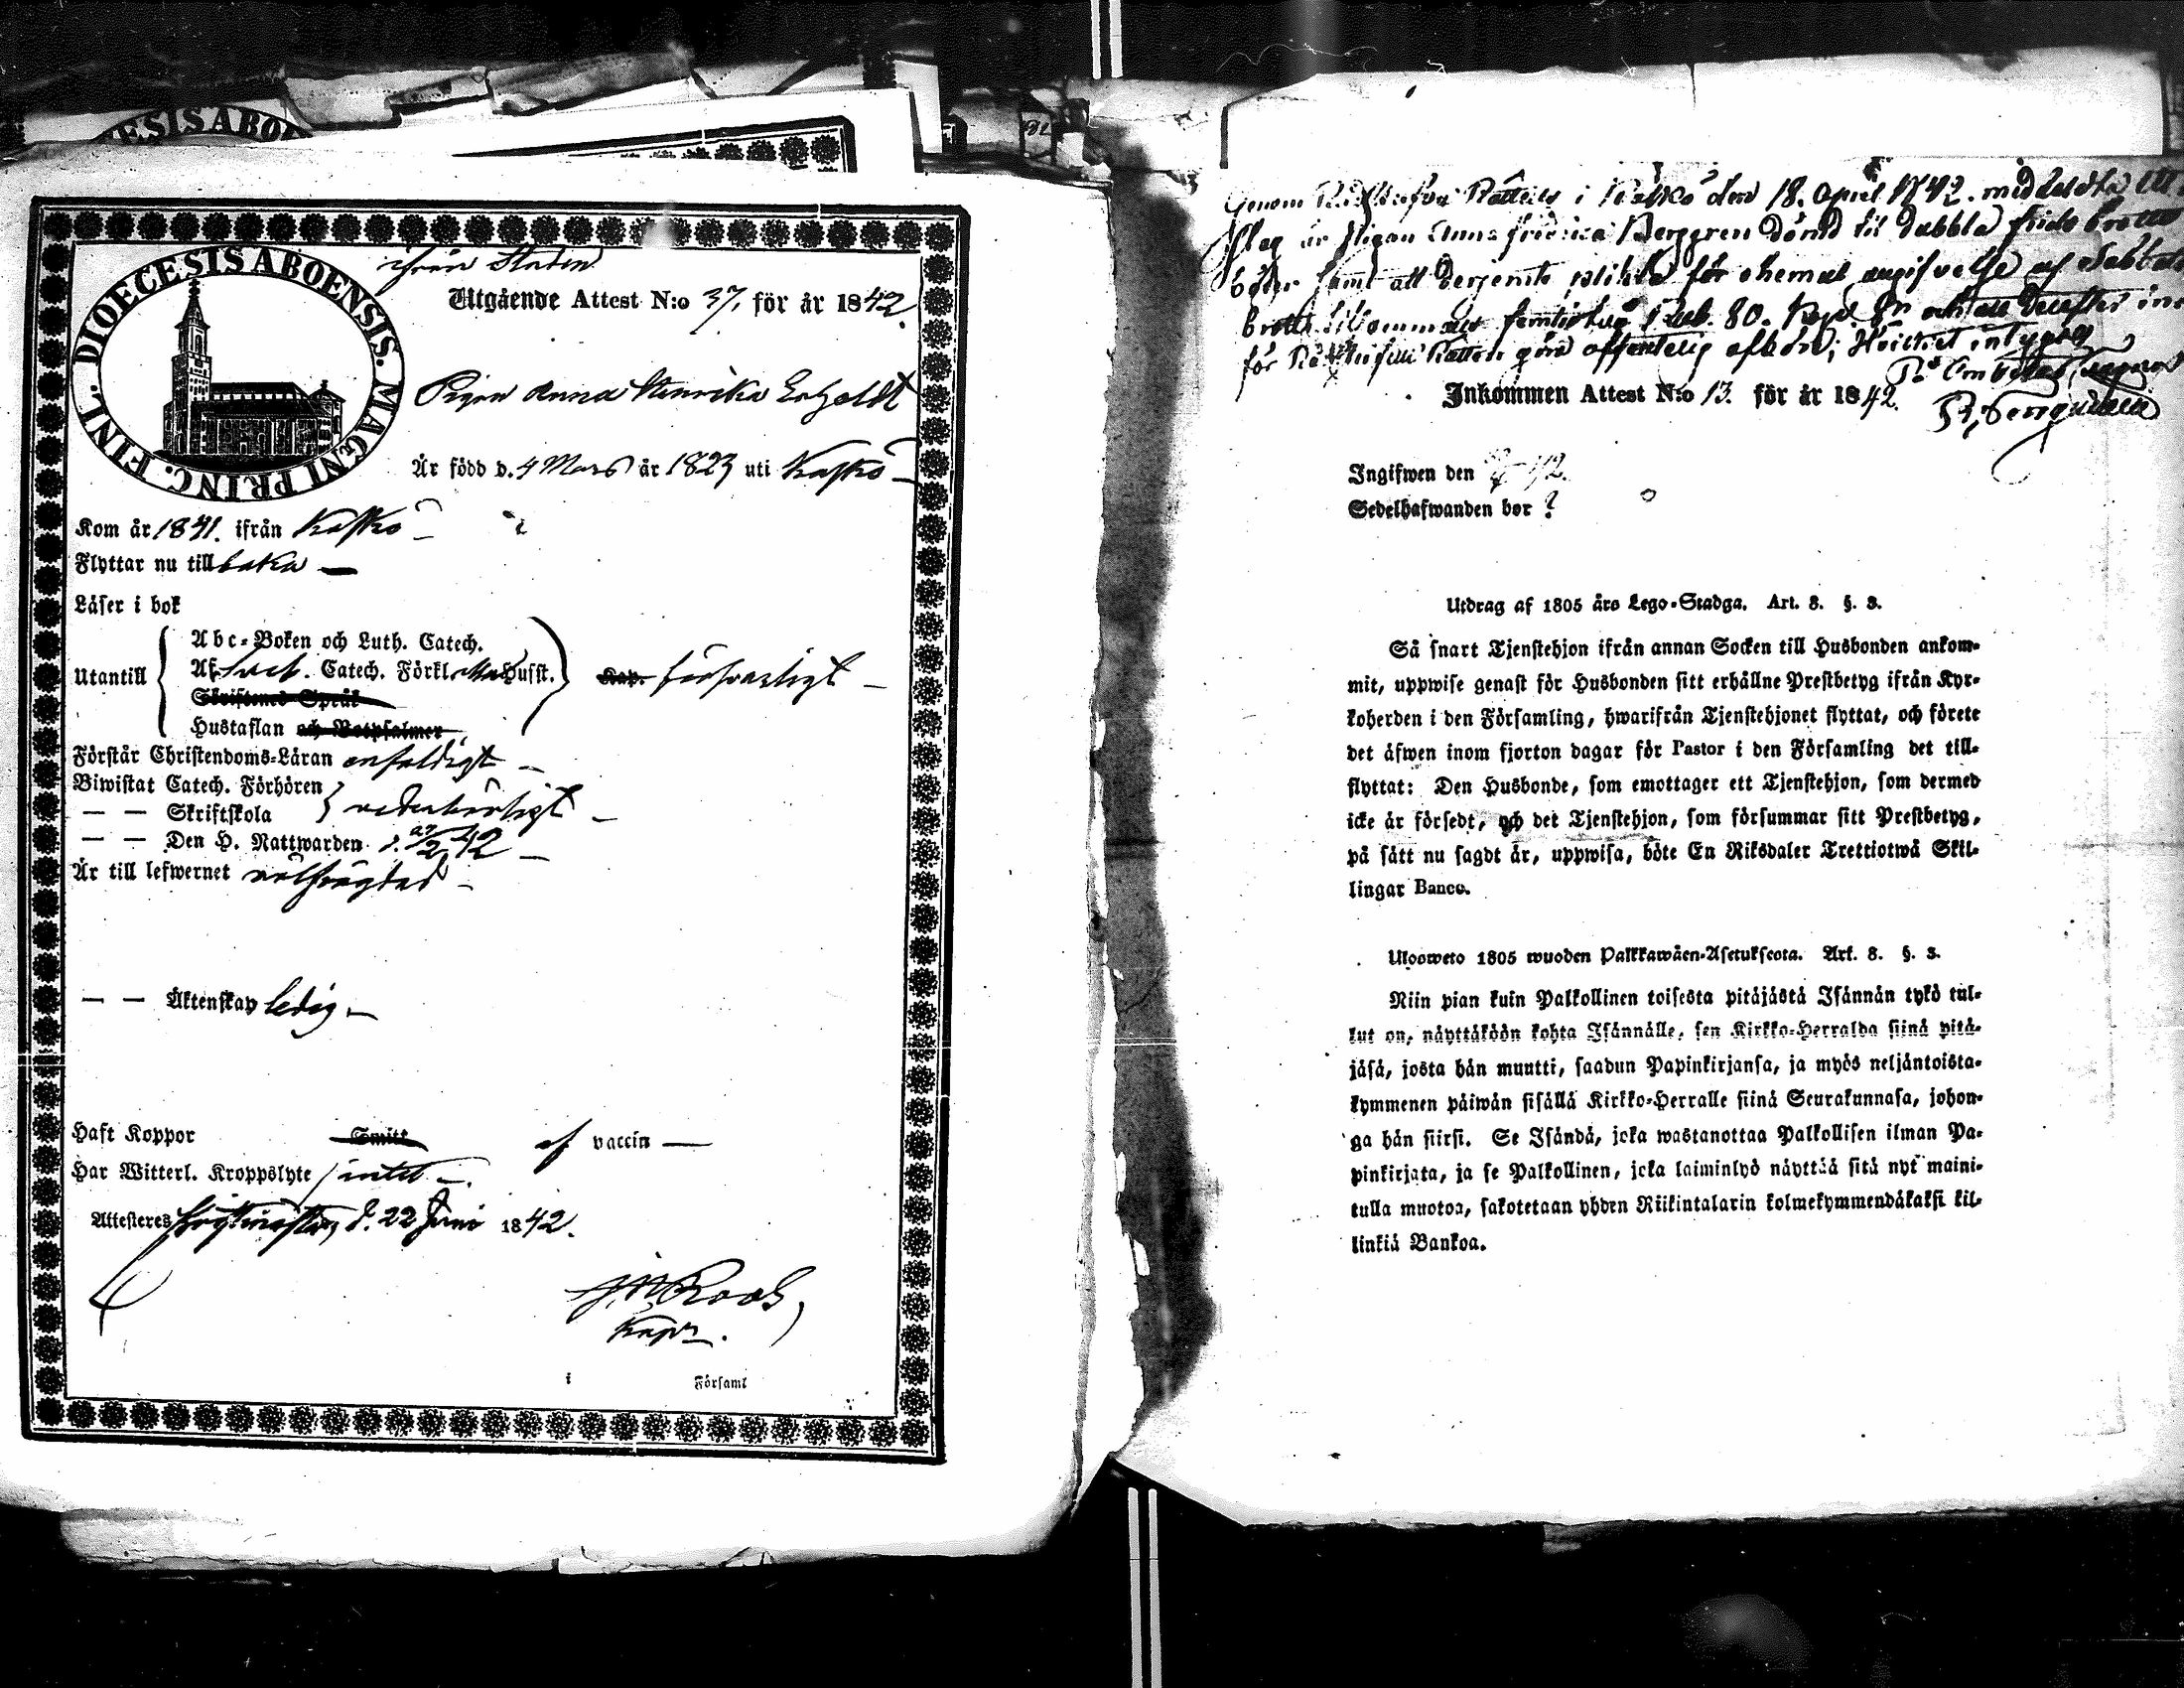 ESIS ABO
DIOECESIS ABOENSIS. MAGNI PRINC. FINL.
ifrån Staden
Utgående Attest N:o 37. för år 1842
Pigan Anna Henrika
Är född d. 4 Mars år 1823 uti Kaskö
Kom år 1841. ifrån Kaskö
Flyttar nu till baka
Läser i bok
Utantill
Abc-Boken och Luth. Catech.
Af Catech. Förkl. Husst.
Kap. försvarligt
Skriftenes Språk
Hustaflan och Botpsalmer
Förstår Christendoms-Läran enfaldigt
Biwistat Catech. Förhören
— — Skriftskola
vederbörligt
— — Den H. Nattwarden d. 42
Är till lefwernet välfrägdad
— — Äktenskap ledig
Haft Koppor Smitt af vaccin —
Har Witterl. Kroppslyte intet
Attesteres d. 22 Juni 1842.
Roos
Kapn.
i Församl
Genom Rådstufvu Rättens i Kaskö den 18. April 1842. meddelta
är Pigan Anna Fredrica Berggren dömd till dubbla
böter samt att för angifvelse af
Rub. 80. Kop. Sr
för Rådstufvu Rätten göra offentelig afbön; Hvilket intygas
Inkommen Attest N:o 13. för år 1842.
Ingifwen den 42.
Sedelhafwanden bor ?
Utdrag af 1805 års Lego-Stadga. Art. 8. §. 3.
Så snart Tjenstehjon ifrån annan Socken till Husbonden ankom-
mit, uppwise genast för Husbonden sitt erhållne Prestbetyg ifrån Kyr-
koherden i den Församling, hwarifrån Tjenstehjonet flyttat, och förete
det äfwen inom fjorton dagar för Pastor i den Församling det till-
flyttat: Den Husbonde, som emottager ett Tjenstehjon, som dermed
icke är försedt, och det Tjenstehjon, som försummar sitt Prestbetyg,
på sätt nu sagdt är, uppwisa, böte En Riksdaler Trettiotwå Skil-
lingar Banco.
Uloosweto 1805 wuoden Palkkawäen-Asetuksesta. Art. 8. §. 3.
Niin pian kuin Palkollinen toisesta pitäjästä Isännän tykö tul-
lut on, näyttäköön kohta Isännälle, sen Kirkko-Herralda siinä pitä-
jäsä, josta hän muutti, saadun Papinkirjansa, ja myös neljäntoista-
kymmenen päiwän sisällä Kirkko-Herralle siinä Seurakunnasa, johon-
ga hän siirsi. Se Isändä, joka wastanottaa Palkollisen ilman Pa-
pinkirjata, ja se Palkollinen, joka laiminlyö näyttää sitä nyt maini-
tulla muotoa, sakotetaan yhden Riikintalarin kolmekymmendäkaksi kil-
linkiä Bankoa.